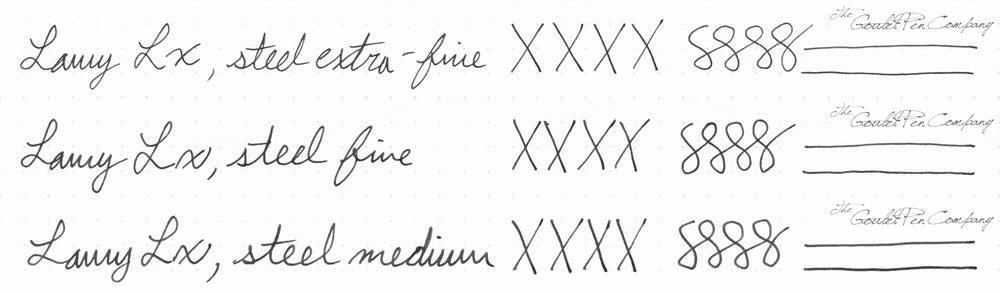 Lamy Lx, steel extra-fine XXXX 8888 The Goulet Pen Company
Lamy Lx, steel fine XXXX 8888 The Goulet Pen Company
Lamy Lx, steel medium XXXX 8888 The Goulet Pen Company